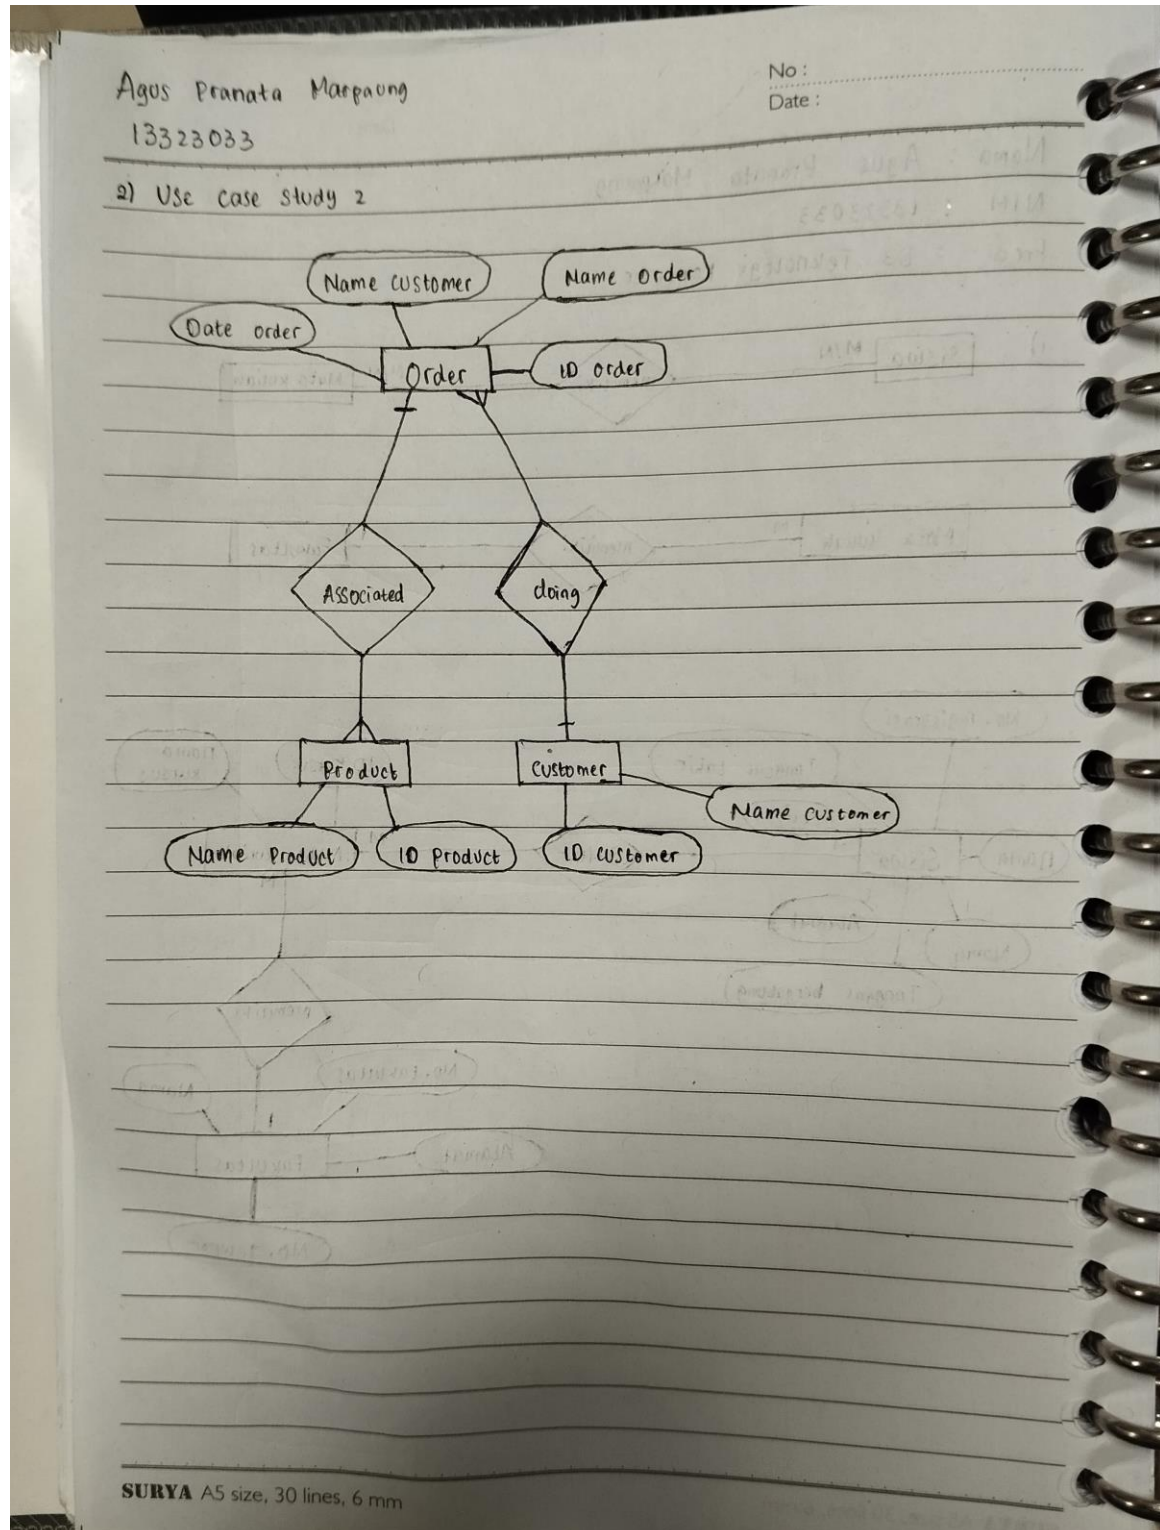 Agus Pranata Marpaung
No :
Date :
13323033
2) Use Case Study 2
Name customer
Name order
Date order
Order
ID order
Associated
doing
Product
Customer
Name customer
Name Product
ID product
ID customer
SURYA A5 size, 30 lines, 6 mm